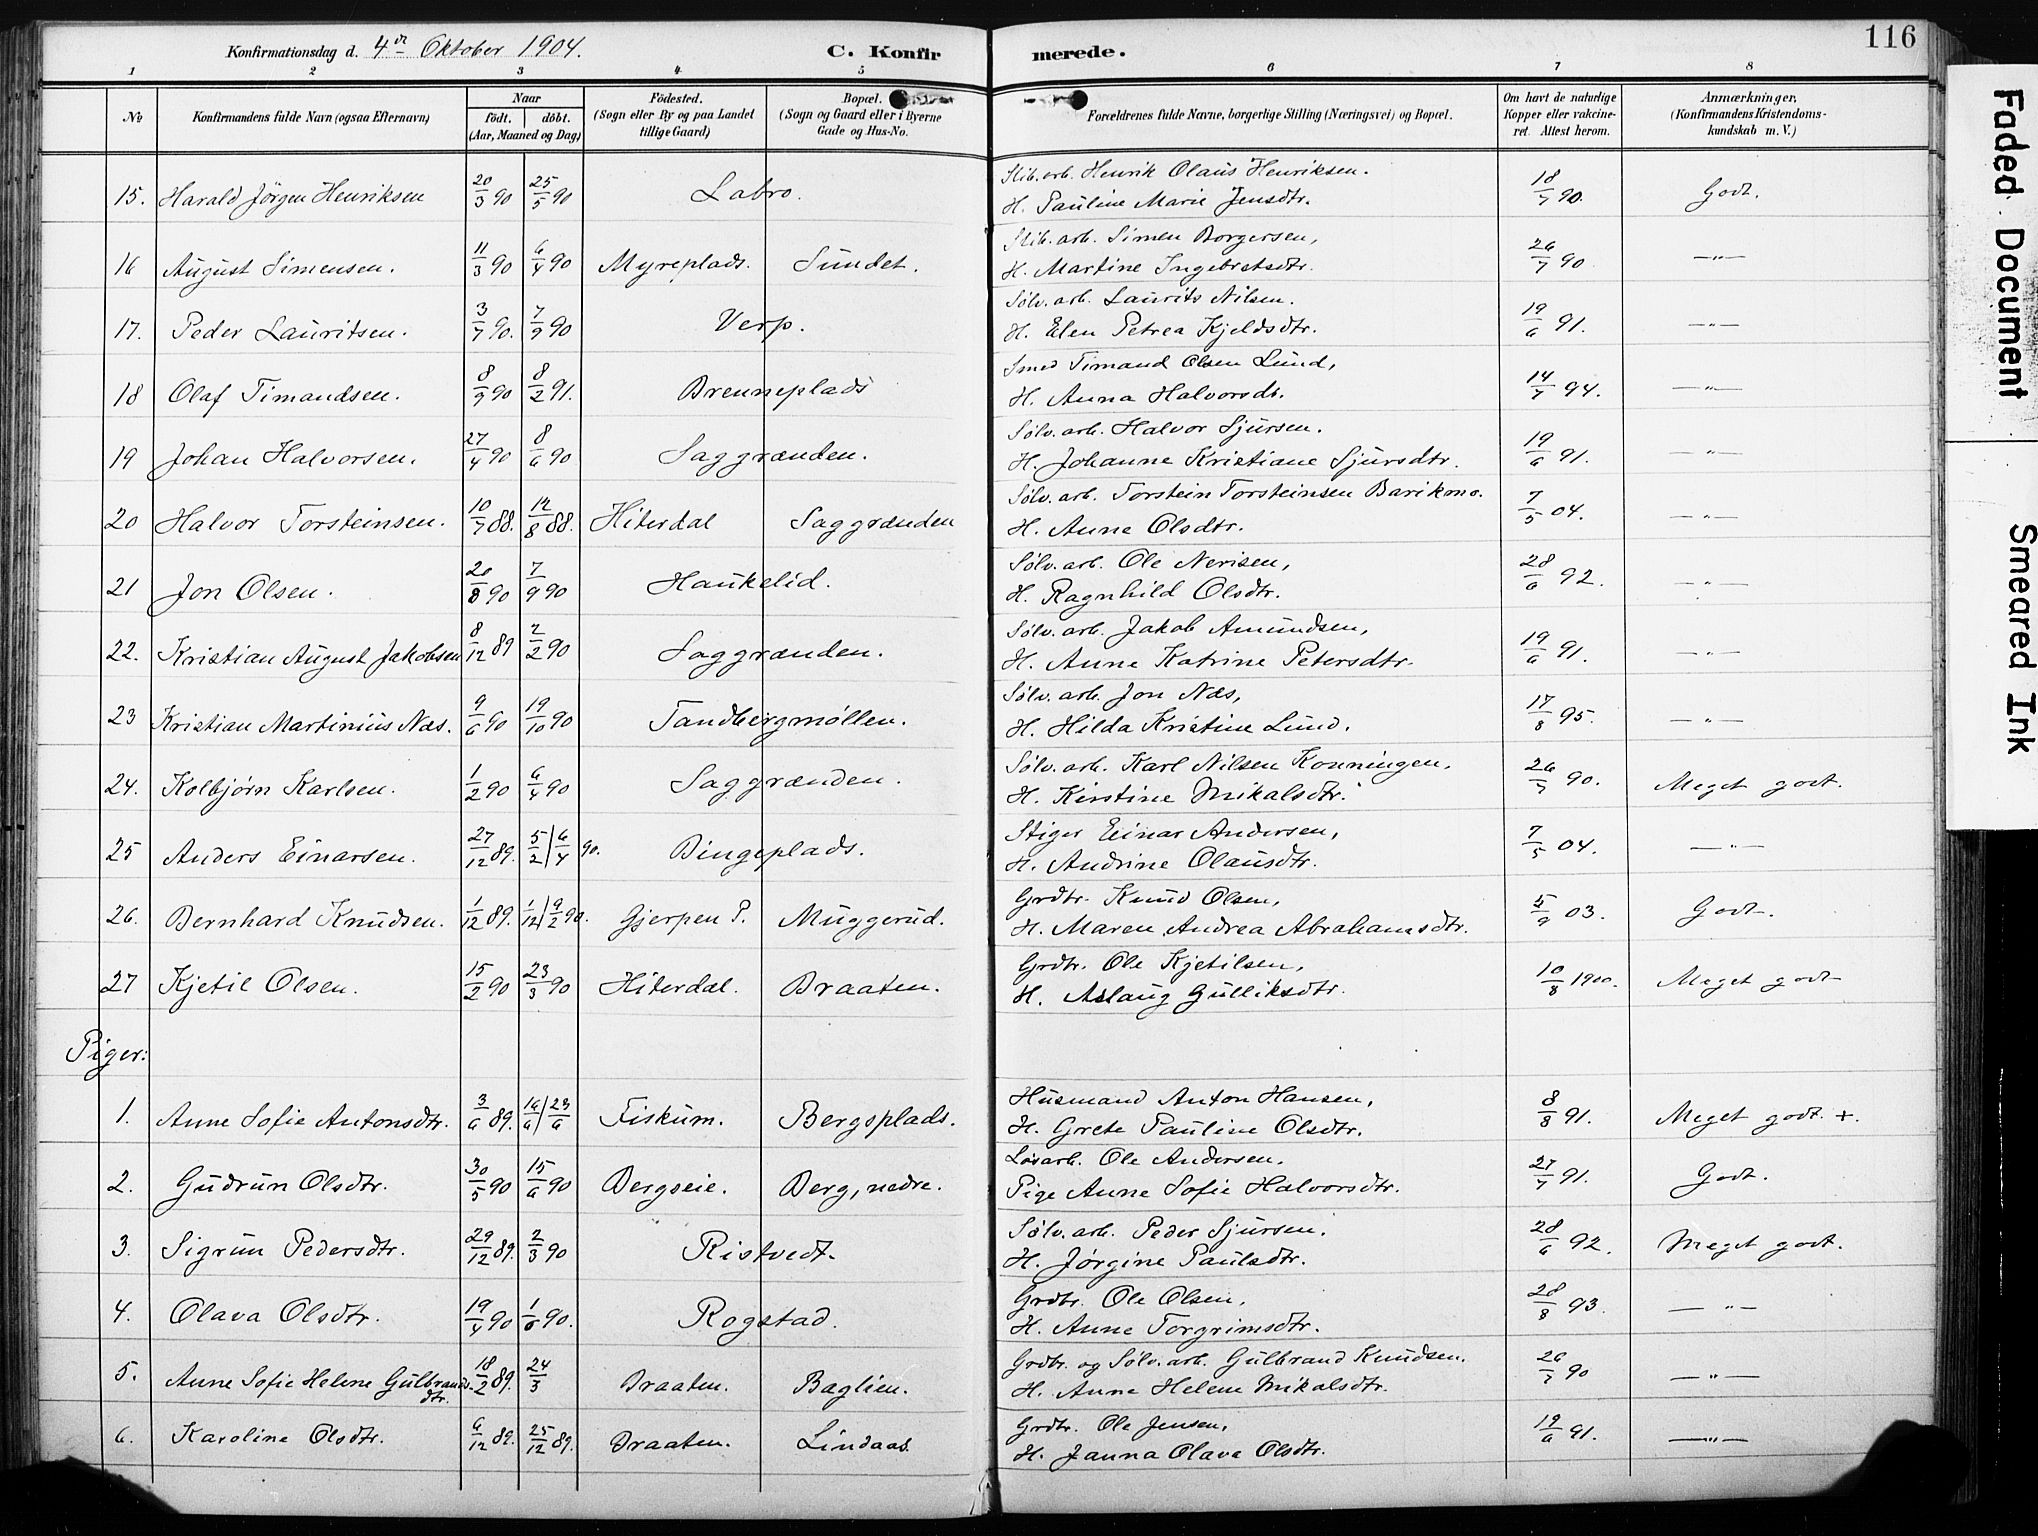 116
Konfirmationsdag d. 4de Oktober 1904. C. Konfirmerede.
1 2 3 4 5 6 7 8
№ Konfirmandens fulde Navn (ogsaa Efternavn) Naar født. døbt. (Aar, Maaned og Dag) Fødested. (Sogn eller By og paa Landet tillige Gaard) Bopæl. (Sogn og Gaard eller i Byerne Gade og Hus-No. Forældrenes fulde Navne, borgerlige Stilling (Næringsvei) og Bopæl. Om havt de naturlige Kopper eller vakcineret. Attest herom. Anmærkninger, (Konfirmandens Kristendomskundskab m. V.)
15. Harald Jörgen Henriksen 20/3 90 25/5 90 Labro. Stib. arb. Henrik Olaus Henriksen. 18/7 90. Godt.
H. Pauline Marie Jensdtr.
16 August Simensen. 11/3 90 6/4 90 Myreplads. Sundet. Stib. arb. Simen Borgersen, 26/7 90 —"—
H. Martine Ingebretsdtr.
17. Peder Lauritsen. 3/7 90. 7/9 90 Verp. Sølv. arb. Laurits Nilsen. 19/6 91. —"—
H. Elen Petrea Kjeldsdtr.
18 Olaf Timandsen. 8/9 90 8/2 91. Brenneplads Smed Timand Olsen Lund, 14/7 94. —"—
H. Anna Halvorsdt.
19 Johan Halvorsen. 27/4 90 8/6 90 Saggrænden. Sølv. arb. Halvor Sjursen. 19/6 91. —"—
H. Johanne Kristiane Sjursdtr.
20 Halvor Torsteinsen. 10/7 88. 12/8 88. Hiterdal Saggrænden Sølv. arb. Torstein Torsteinsen Barikmo. 7/5 04. —"—
H. Anne Olsdtr.
21 Jon Olsen. 20/8 90 7/9 90 Haukelid. Sølv. arb. Ole Nerisen, 28/6 92. —"—
H. Ragnhild Olsdtr.
22. Kristian August Jakobsen 8/12 89 2/2 90 Saggrænden. Sølv. arb. Jakob Amundsen, 19/6 91. —"—
H. Anne Katrine Petersdtr.
23 Kristian Martinius Næs. 9/6 90 19/10 90 Tandbergmøllen. Sølv. arb. Jon Næs, 17/8 95. —"—
H. Hilda Kristine Lund.
24. Kolbjørn Karlsen. 1/2 90 6/4 90 Saggrænden. Sølv. arb. Karl Nilsen Konningen. 26/7 90. Meget godt.
H. Kirstine Mikalsdtr.
25 Anders Einarsen. 27/12 89. 5/2 | 6/4 90. Bingeplads. Stiger Einar Andersen, 7/5 04. —"—
H. Andrine Olausdtr.
26. Bernhard Knudsen. 1/12 89. 1/12 | 9/2 90. Gjerpen P. Muggerud. Grdbr. Knud Olsen, 5/9 03. Godt.
H. Maren Andrea Abrahamsdtr.
27 Kjetil Olsen. 15/2 90 23/3 90 Hiterdal. Braaten. Grdbr. Ole Kjetilsen, 10/8 1900. Meget godt
H. Aslaug Gulliksdtr.
Piger:
1. Anne Sofie Antonsdtr. 3/6 89. 16/6 | 23/6 Fiskum. Bergsplads. Husmand Anton Hansen, 8/8 91. Meget godt +.
H. Grete Pauline Olsdtr.
2. Gudrun Olsdtr. 30/5 90 15/6 90 Bergseie. Berg, nedre. Løsarb. Ole Andersen. 27/7 91. Godt.
Pige Anne Sofie Halvorsdtr.
3. Sigrun Pedersdtr. 29/12 89. 2/3 90 Ristvedt. Sølv. arb. Peder Sjursen. 28/6 92. Meget godt.
H. Jørgine Paulsdtr.
4. Olava Olsdtr. 19/4 90 1/6 90. Rogstad. Grdbr. Ole Olsen, 28/8 93. —"—
H. Anne Torgrimsdtr.
5. Anne Sofie Helene Gulbrandsdtr. 18/2 89. 24/3 Braaten. Baglien. Grdbr. og Sølv. arb. Gulbrand Knudsen. 26/7 90 —"—
H. Anne Helene Mikalsdtr.
6. Karoline Olsdtr. 6/12 89. 25/12 89. Braaten. Lindaas. Grdbr. Ole Jensen, 19/6 91. —"—
H. Janna Olava Olsdtr.
Faded Document
Smeared Ink